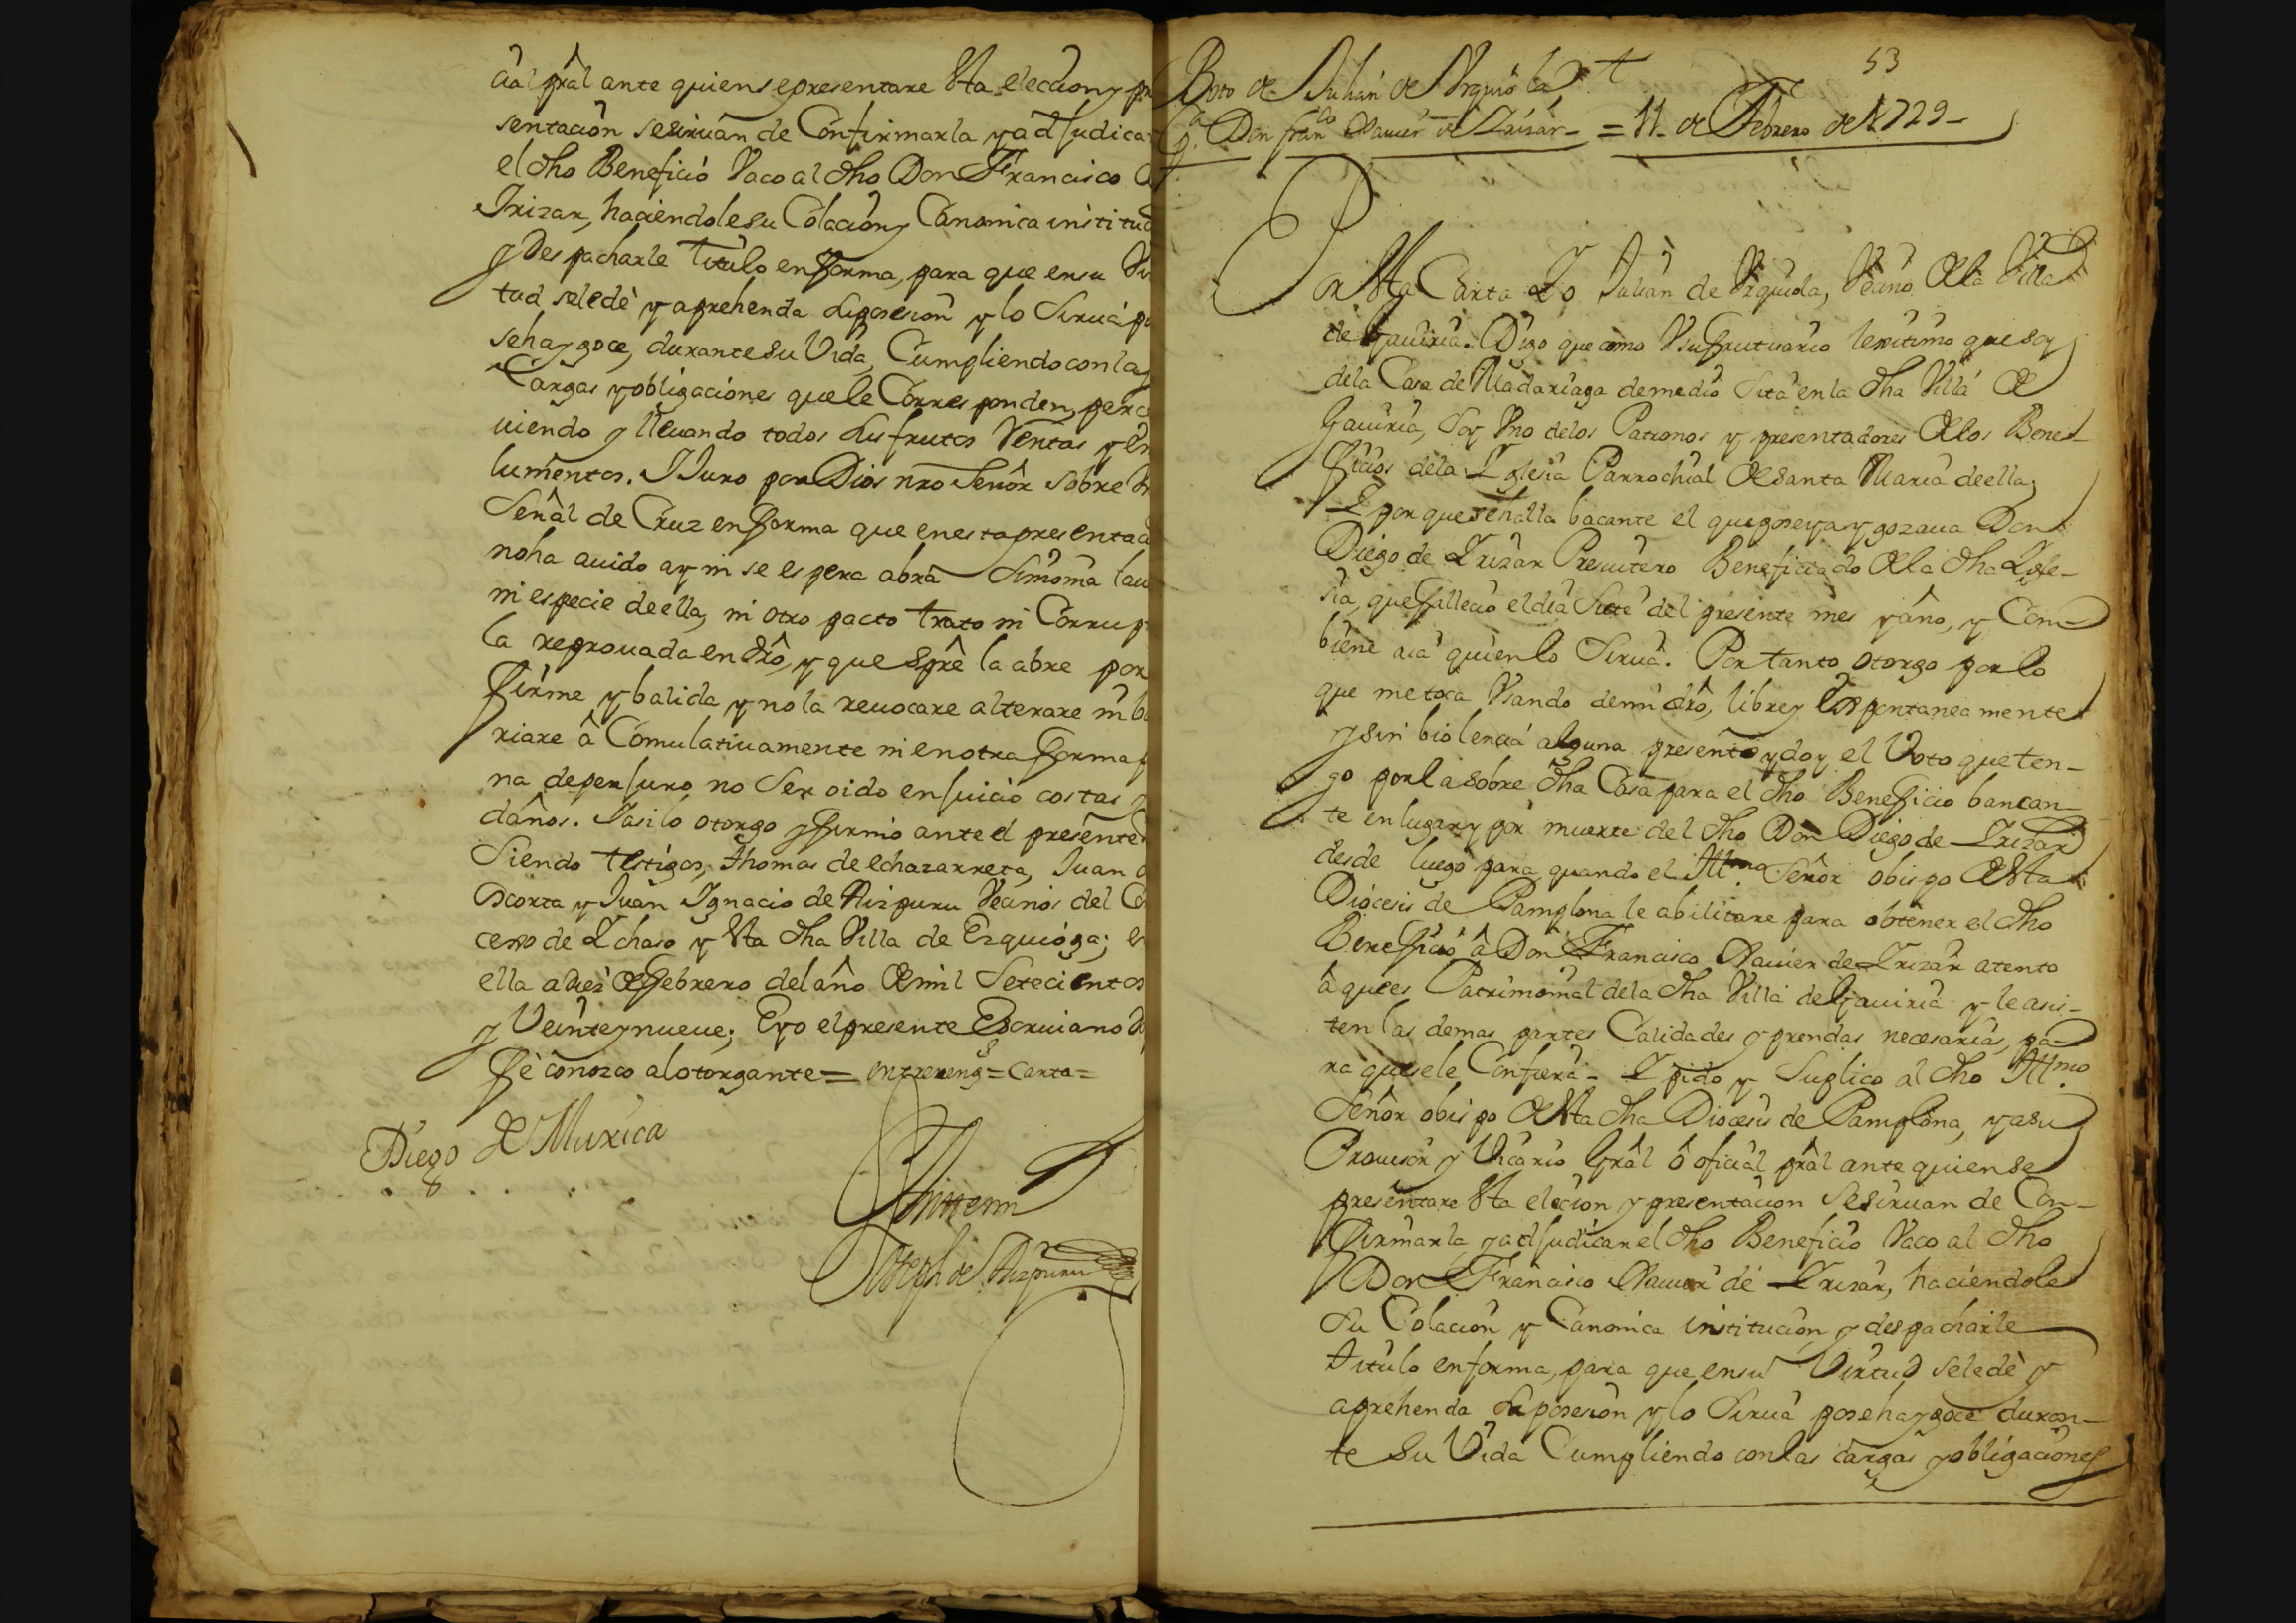 cial gral ante quien sepresentare Sta eleccion y pre
sentacion sesirvan de Confirmarla y adJudicar
el dho Beneficio Vaco al dho Don Francisco
Irizar, haciendole su Colacion y Canonica institu
y Despacharle titulo en forma, para que en su Vir
tud sele dè y aprehenda suposesion y lo Sirua po
seha y goce, durante su Vida, Cumpliendo con las
Cargas y obligaciones que le Corresponden, perci
uiendo y lleuando todos sus frutos Rentas y Em
lumentos. Y Juro por Dios nro Señor sobre
Señal de Cruz en forma que en esta presentac
no ha auido ay ni se espera abra Simonia
ni especie de ella, ni otro pacto trato ni Corrup
la reprouada en dro, y que spre la abre por
firme y balida y no la reuocare alterare ni
riare â Comulatiuamente ni en otra forma p
na de perJuro no Ser oido en Juicio costas y
daños. Y asi lo otorgo y firmò ante el presente
Siendo testigos, thomas de echazarreta, Juan
Ocorta y Juan Ignacio de Aizpuru Veçinos del Con
cexo de Ichaso y Sta dha Villa de Ezquioga; en
ella a diez de febrero del año de mil Setecientos
y Veinte y nueue; E yo el presente Escriuano
fè conozco al otorgante = entrerengs = Carta =
Diego de Muxica
Ante mi
Joseph de Aizpuru
53
Boto de Julian de Urquiola
pa Don franco Xauier de Irizar = 11 de Febrero de 1729
Por Sta Carta Yo Julian de Urquiola, Veçino de la Villa
de Gauiria. Digo que como Usufrutuario lexitimo que soy
de la Casa de Madariaga de medio Sita en la dha Villa de
Gauiria, Soy Uno delos Patronos y presentadores de los Bene
ficios dela Iglesia Parrochial de Santa Maria de ella,
Y por que se halla bacante el que poseya y gozaua Don
Diego de Irizar Presuitero Beneficiado de la dha Igle-
sia, que fallecio el dia Siete del presente mes y año, y Com-
biene aia quien lo Sirua. Por tanto otorgo por lo
que me toca Usando de mi dro, libre y espontaneamente
y sin biolencia alguna presento y doy el Voto que ten-
go por la sobre dha Casa para el dho Beneficio bancan-
te en lugar y por muerte del dho Don Diego de Irizar
desde luego para quando el Illmo Señor obispo de Sta
Diocesis de Pamplona le abilitare para obtener el dho
Beneficio â Don Francisco Xauier de Irizar atento
â que es Patrimonial dela dha Villa de Gauiria y le asis-
ten las demas partes Calidades y prendas necesarias, pa-
ra que sele Confiera - Y pido y Suplico al dho Illmo
Señor obispo de Sta dha Diocesis de Pamplona, y a su
Prouisor y Vicario Gral ô oficial pral ante quien se
presentare Sta elecion y presentacion Se siruan de Con-
firmarla, y adJudicar el dho Beneficio Vaco al dho
Don Francisco Xauier de Irizar, haciendole
Su Colacion y Canonica institucion y despacharle
titulo en forma, para que en su Virtud sele dè y
aprehenda su posesion y lo Sirua poseha y goce duran-
te Su Vida Cumpliendo con las cargas y obligaciones